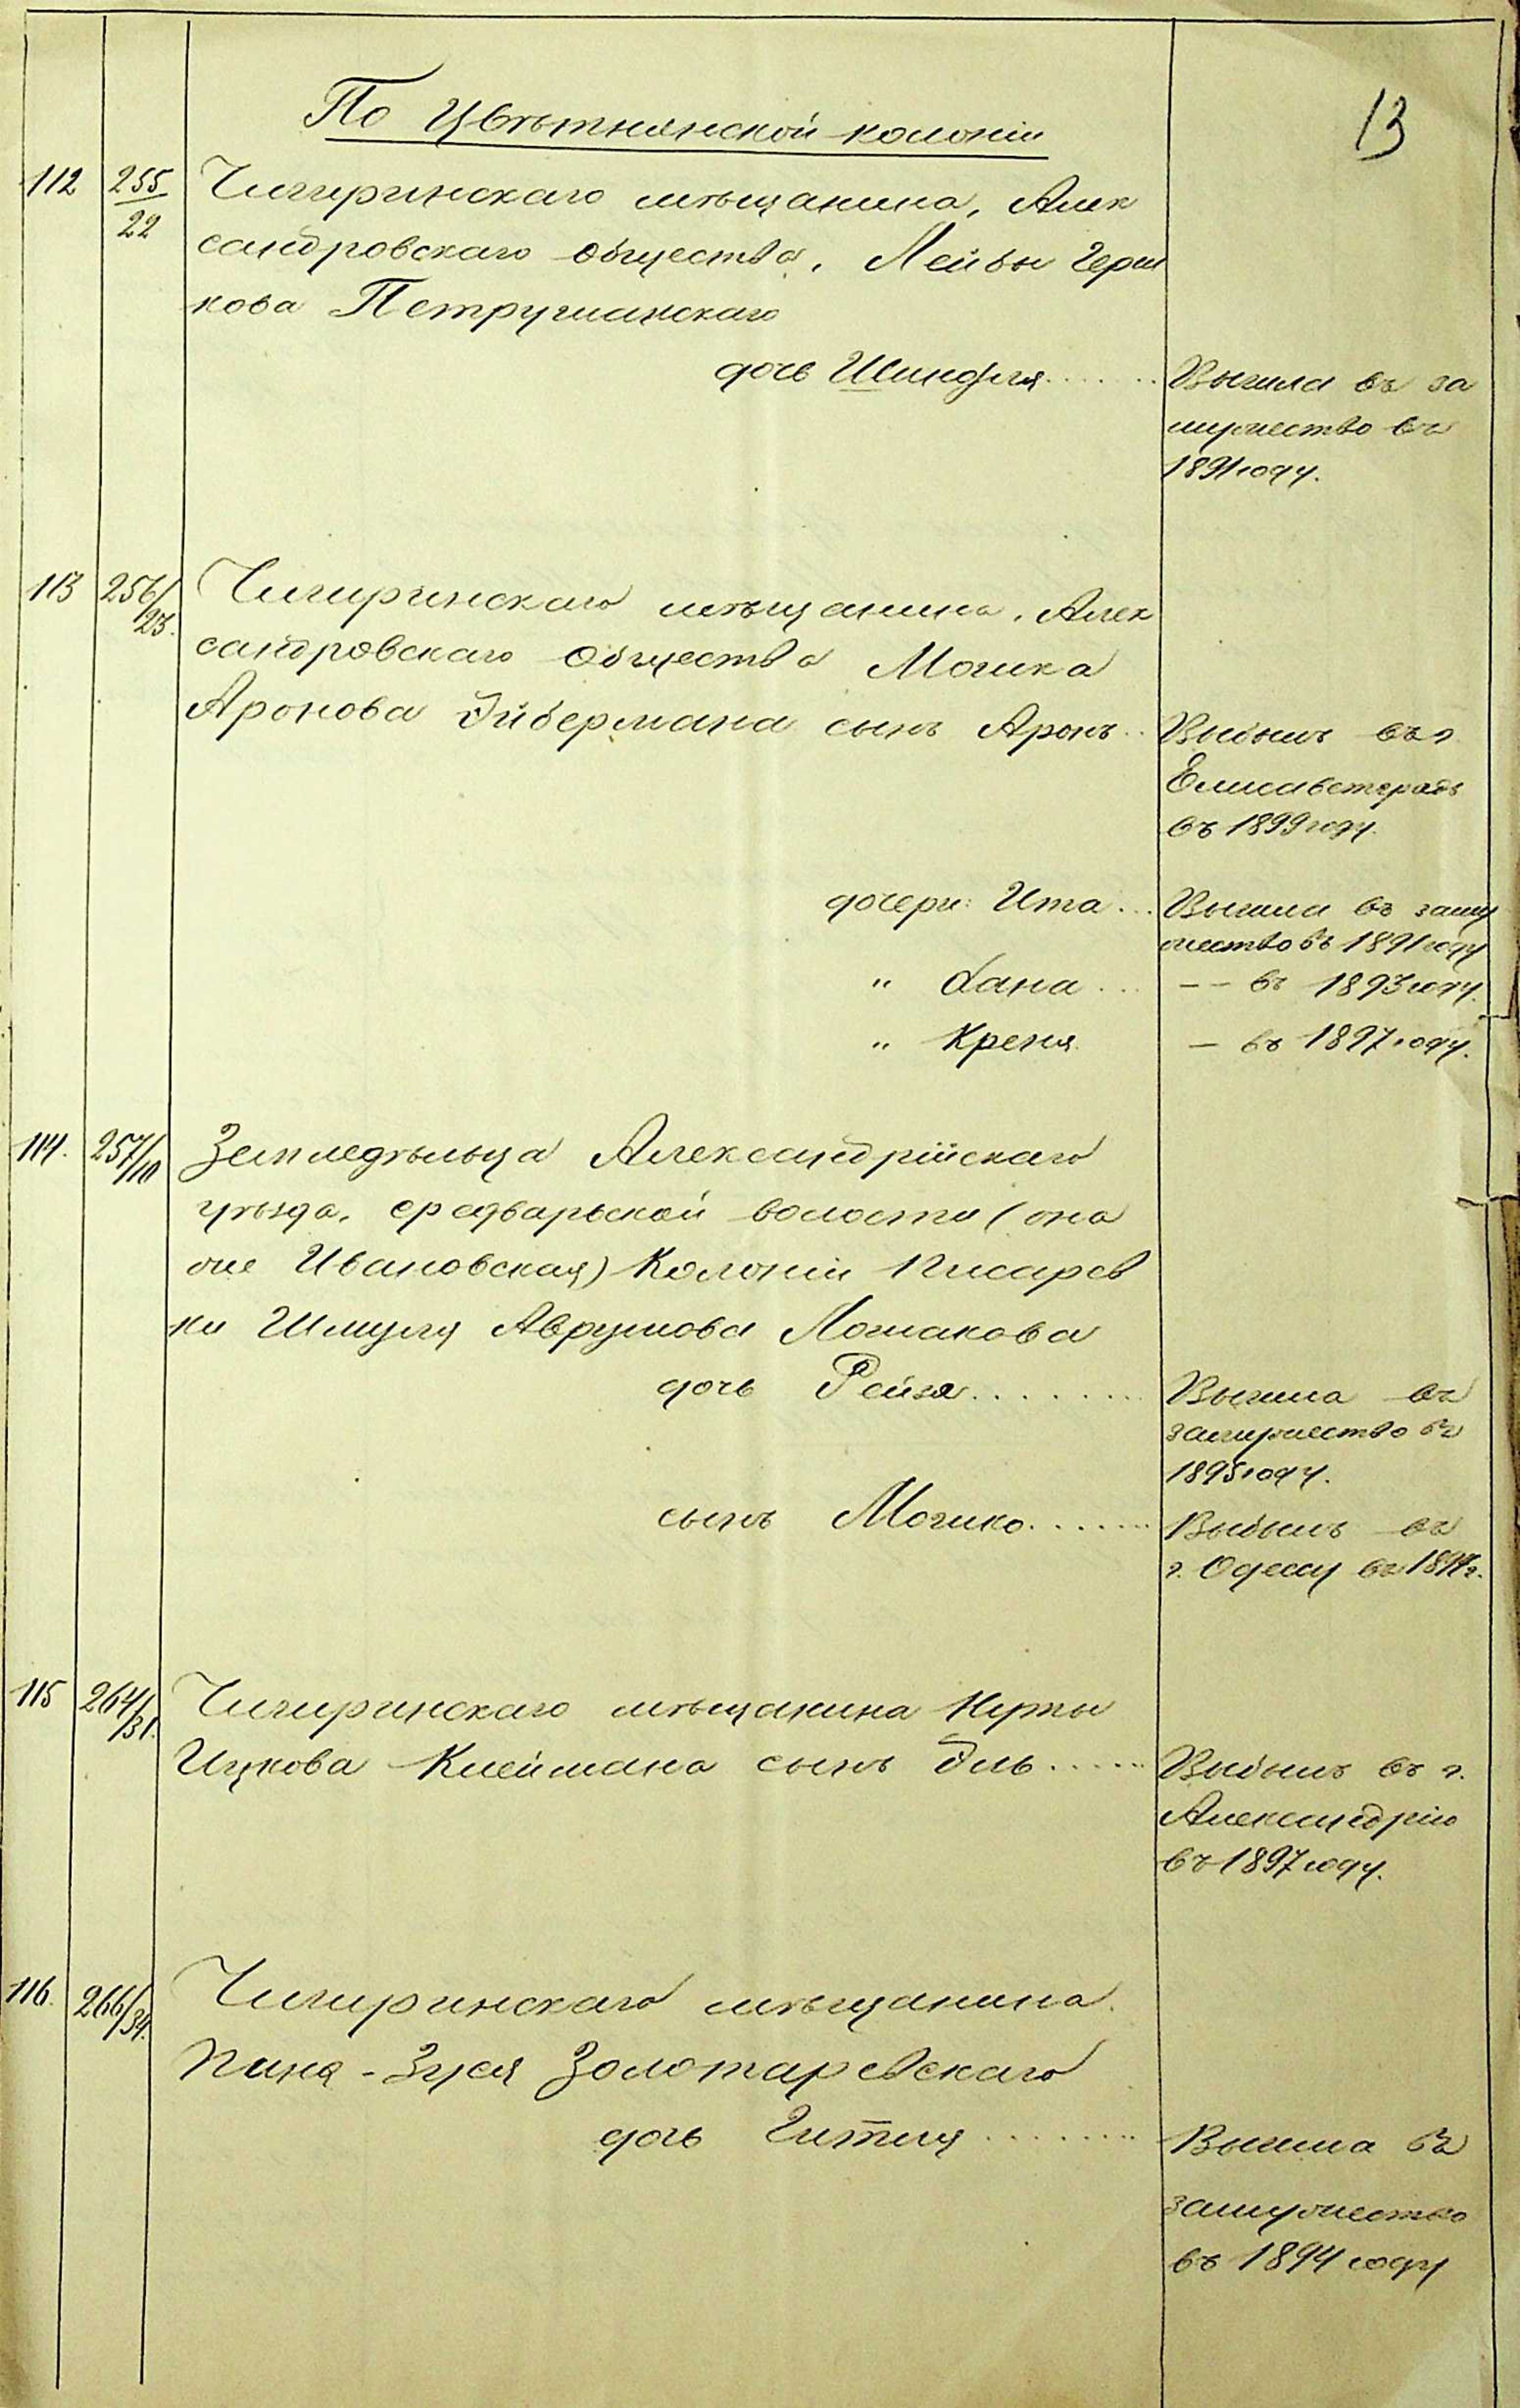 13
По Цвѣтнянской колоніи
112 255/22 Чигиринскаго мѣщанина, Алек
сандровскаго общества, Лейбы Герш
кова Петрушанскаго
дочь Шиндля....... Вышла въ за
мужество въ
1891 году.
113 256/23. Чигиринскаго мѣщанина, Алек
сандровскаго общества Мошка
Аронова Эйбермана сынъ Аронъ.. Выбылъ въ г.
Елисаветградъ
въ 1899 году.
дочери: Ита... Вышла въ заму
жество въ 1891 году
" Хана... -- въ 1893 году.
" Креня. - въ 1897 году.
114. 257/10 Земледѣльца Александрійскаго
уѣзда, волости (она
же Ивановская) Колоніи Писарев
ки Шмуля Аврумова Лошакова
дочь Рейзя........ Вышла въ
замужество въ
1895 году.
сынъ Мошко....... Выбылъ въ
г. Одессу въ г.
115 264/31. Чигиринскаго мѣщанина Нуты
Ицкова Клеймана сынъ Эль..... Выбылъ въ г.
Александрію
въ 1897 году.
116. 266/34. Чигиринскаго мѣщанина
Пиня-Зуся Золотаревскаго
дочь Гитля........ Вышла въ
замужество
въ 1894 году